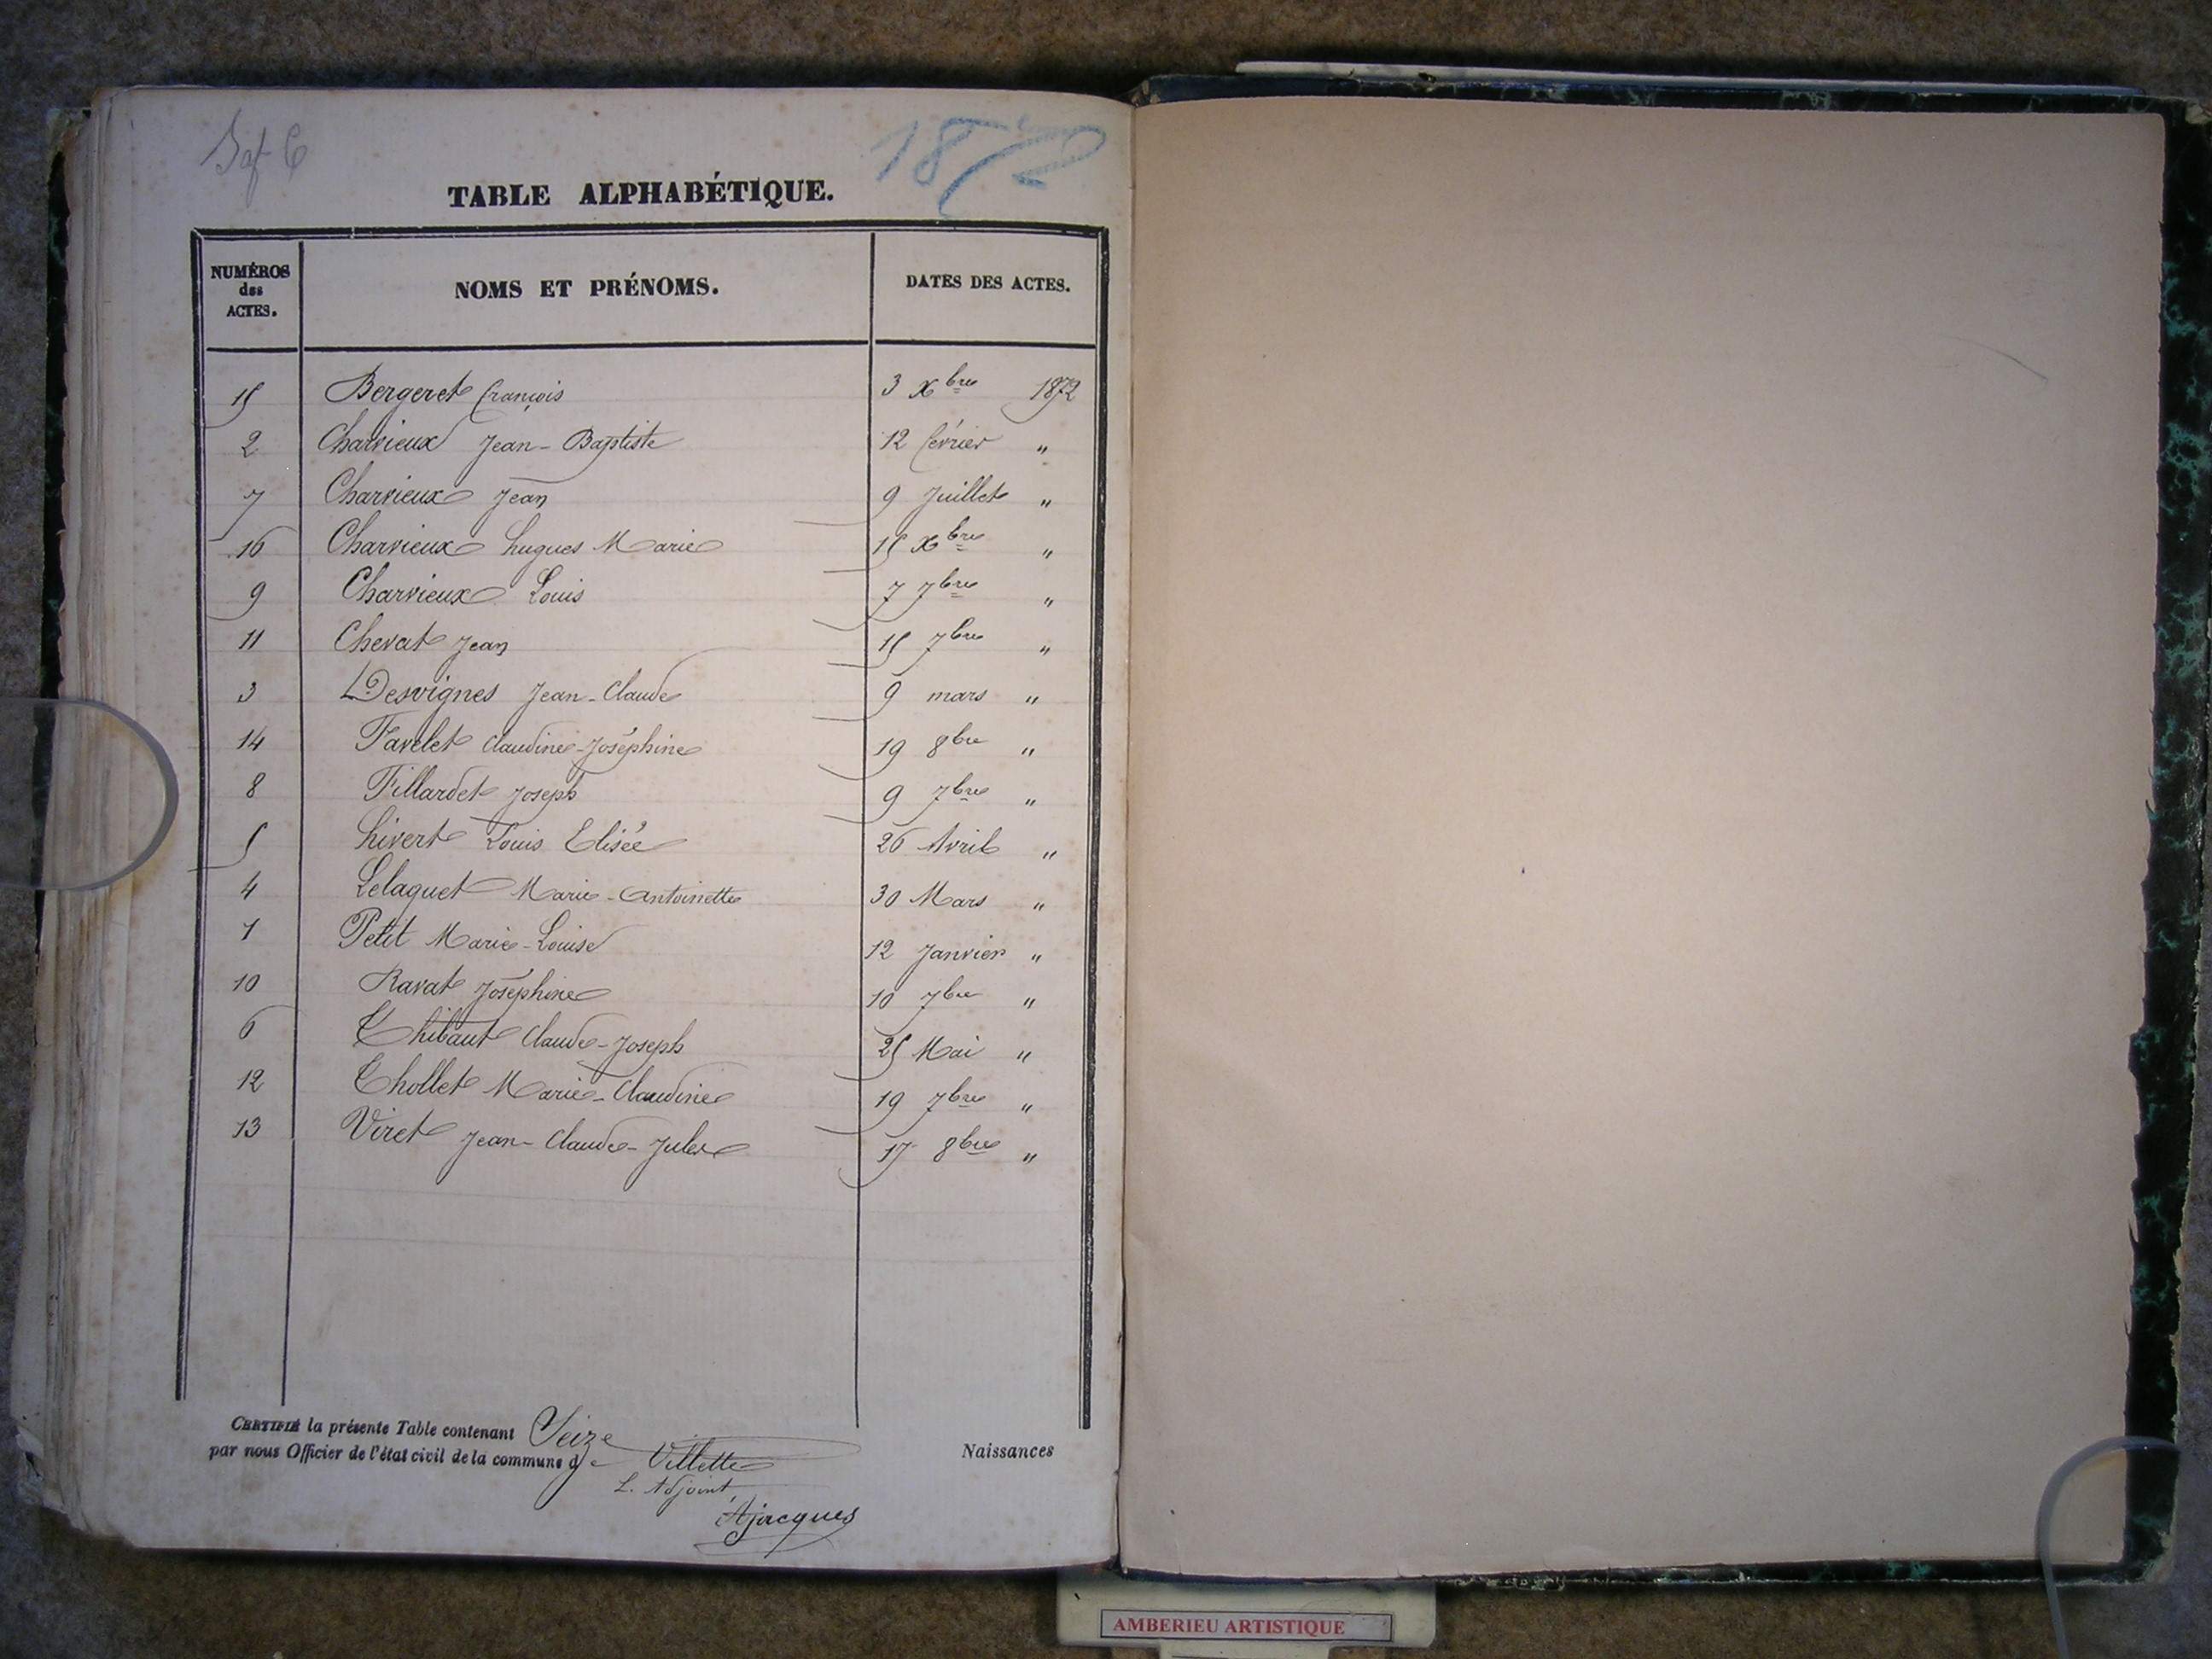 1872
TABLE ALPHABÉTIQUE.
NUMÉROS des ACTES. NOMS ET PRÉNOMS. DATES DES ACTES.
15 Bergeret françois 3 Xbre 1872
2 Charvieux Jean-Baptiste 12 février "
7 Charvieux Jean 9 Juillet "
16 Charvieux hugues Marie 15 Xbre "
9 Charvieux Louis 7 7bre "
11 Chevat Jean 15 7bre "
3 Desvignes Jean-Claude 9 mars "
14 Favelet Claudine-Joséphine 19 8bre "
8 Fillardet Joseph 9 7bre "
5 hivert Louis Elisée 26 Avril "
4 Lelaquet Marie-Antoinette 30 Mars "
1 Petit Marie-Louise 12 Janvier "
10 Ravat Joséphine 10 7bre "
6 Thibaut Claude-Joseph 25 Mai "
12 Thollet Marie-Claudine 19 7bre "
13 Viret Jean-Claude-Jules 17 8bre "
CERTIFIÉ la présente Table contenant Seize Naissances
par nous Officier de l'état civil de la commune de Villette
L. Adjoint,
Ajacques
AMBERIEU ARTISTIQUE